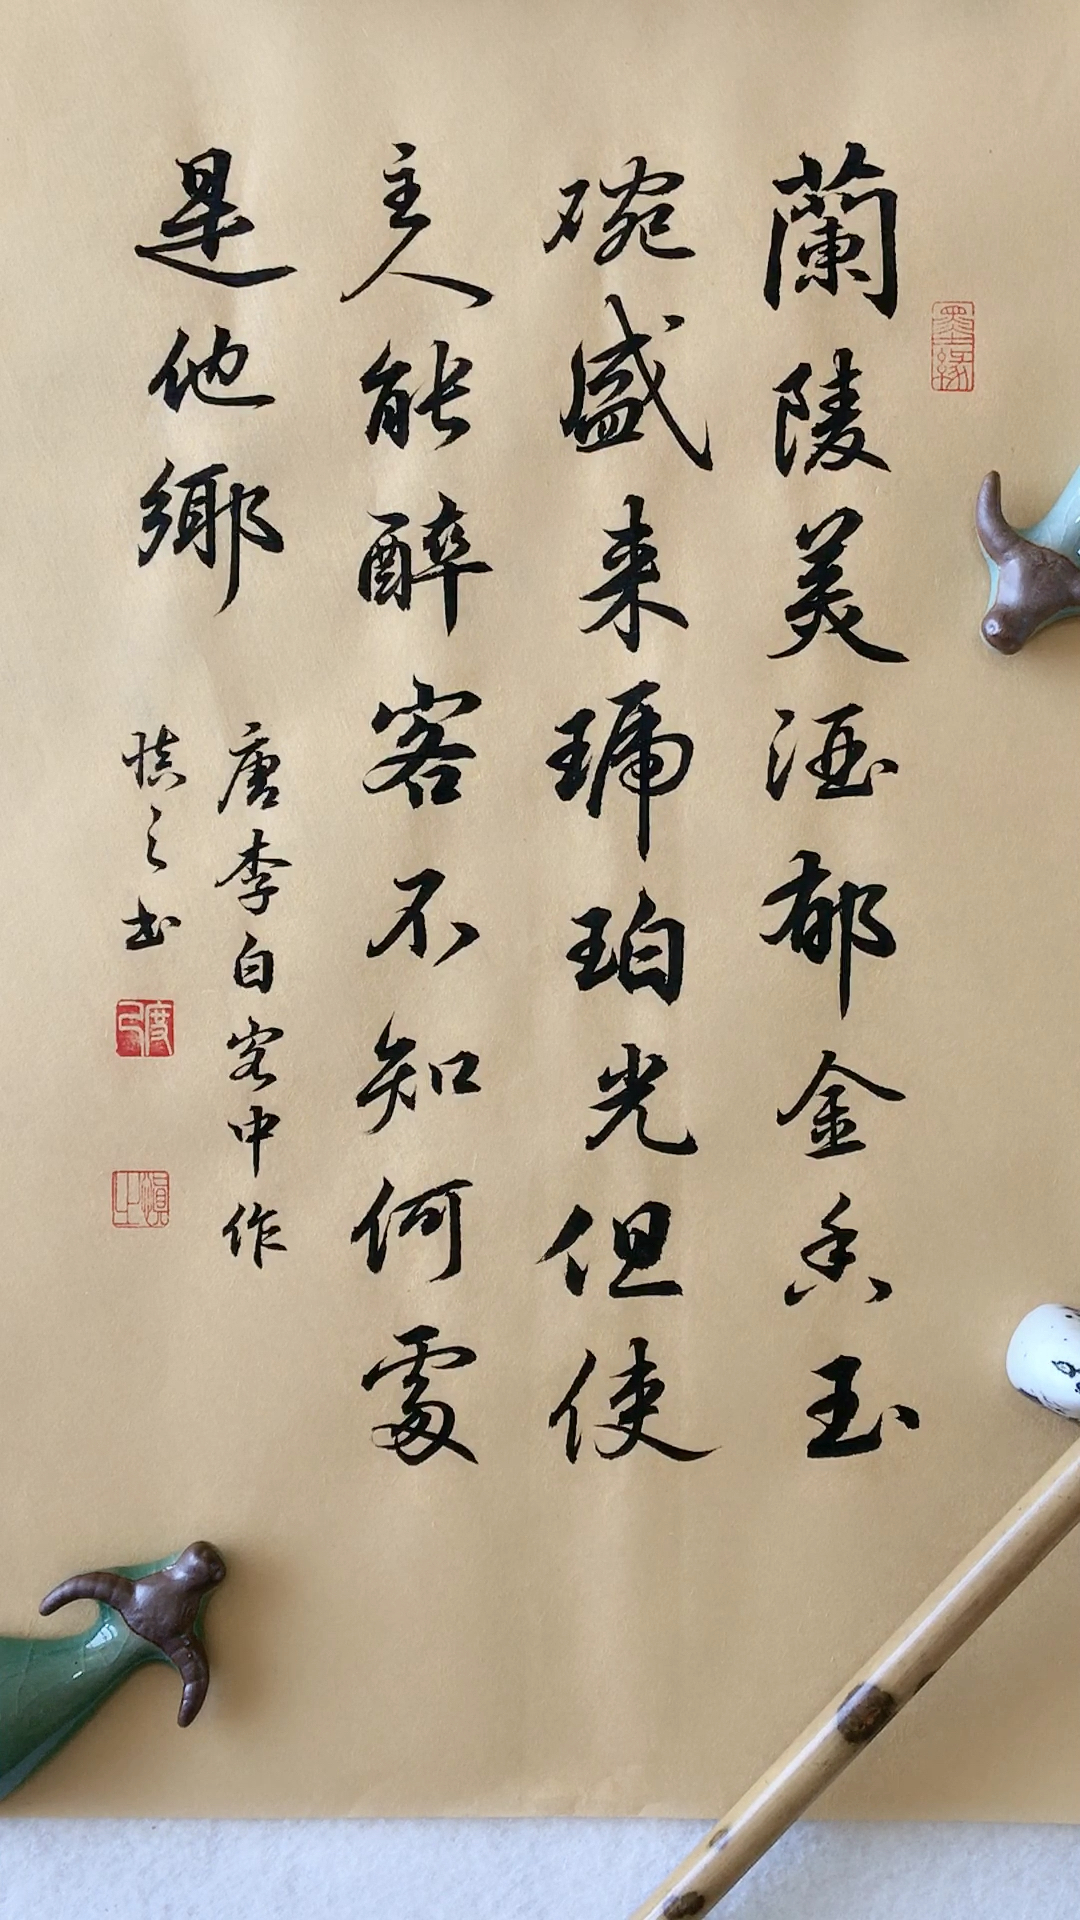 蘭陵美酒郁金香玉
碗盛来琥珀光但使
主人能醉客不知何處
是他鄉
唐李白客中作
慎之书
墨缘